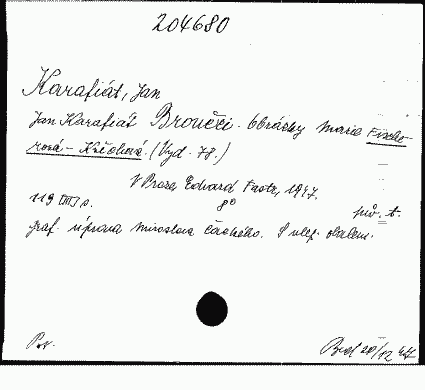 204680
Karafiát, Jan
Jan Karafiát Broučci. Obrázky Marie Fische-
rová-Kvěchová. (Vyd. 78.)
V Praze, Edvard Fastr, 1947.
119 [III] s. 8°
pův. t.
graf. úprava Miroslava S nlep. obálem.